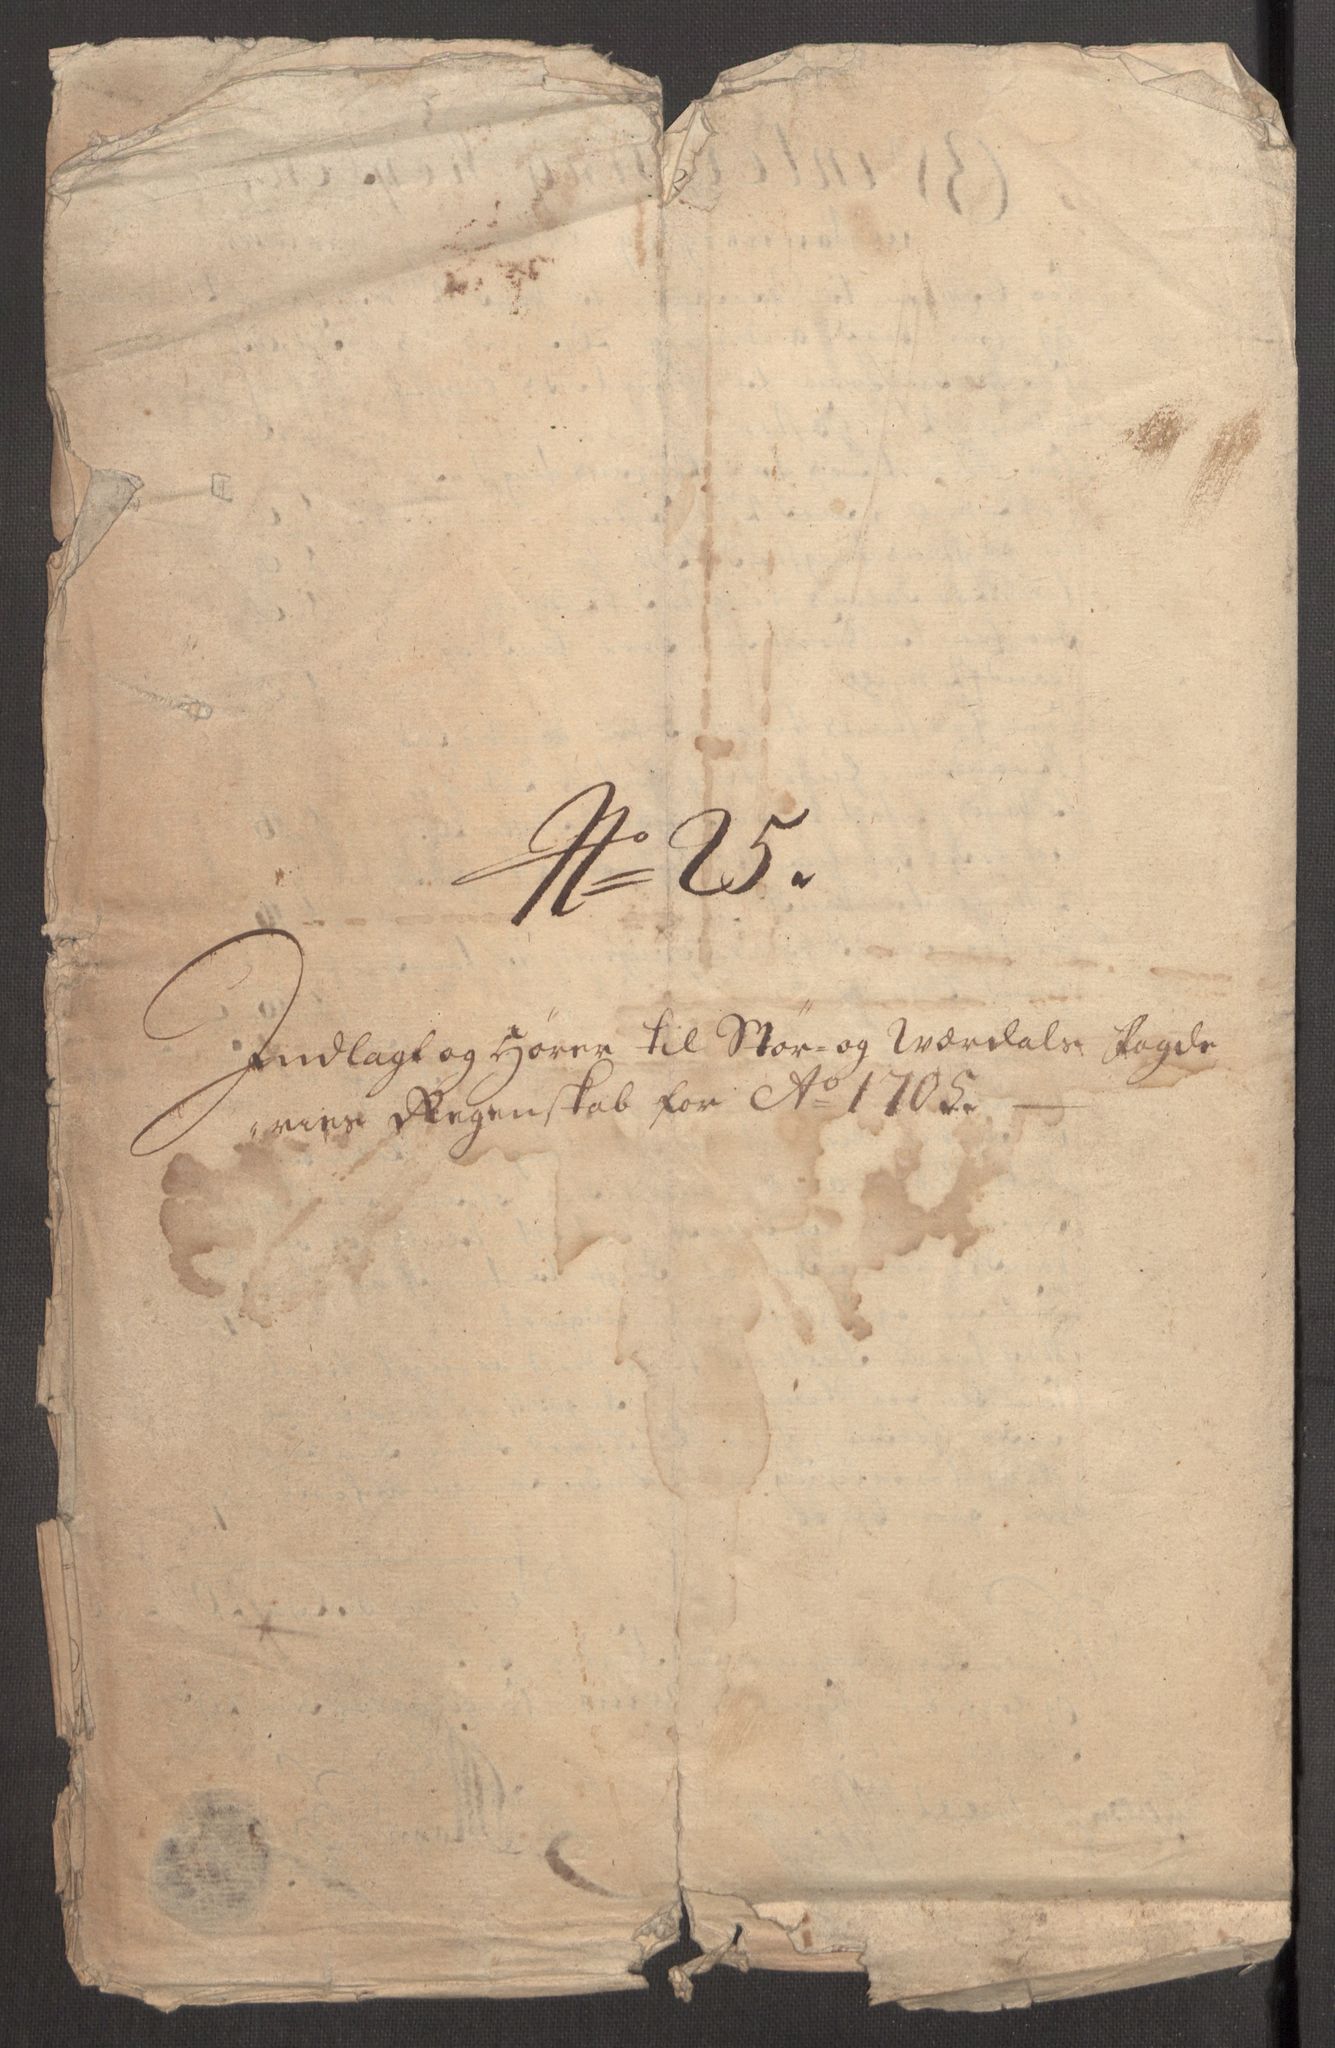 No 25.
Indlagt og Hører til Stør- og Værdals Fogde
ries Regenskab for Ao 1705.